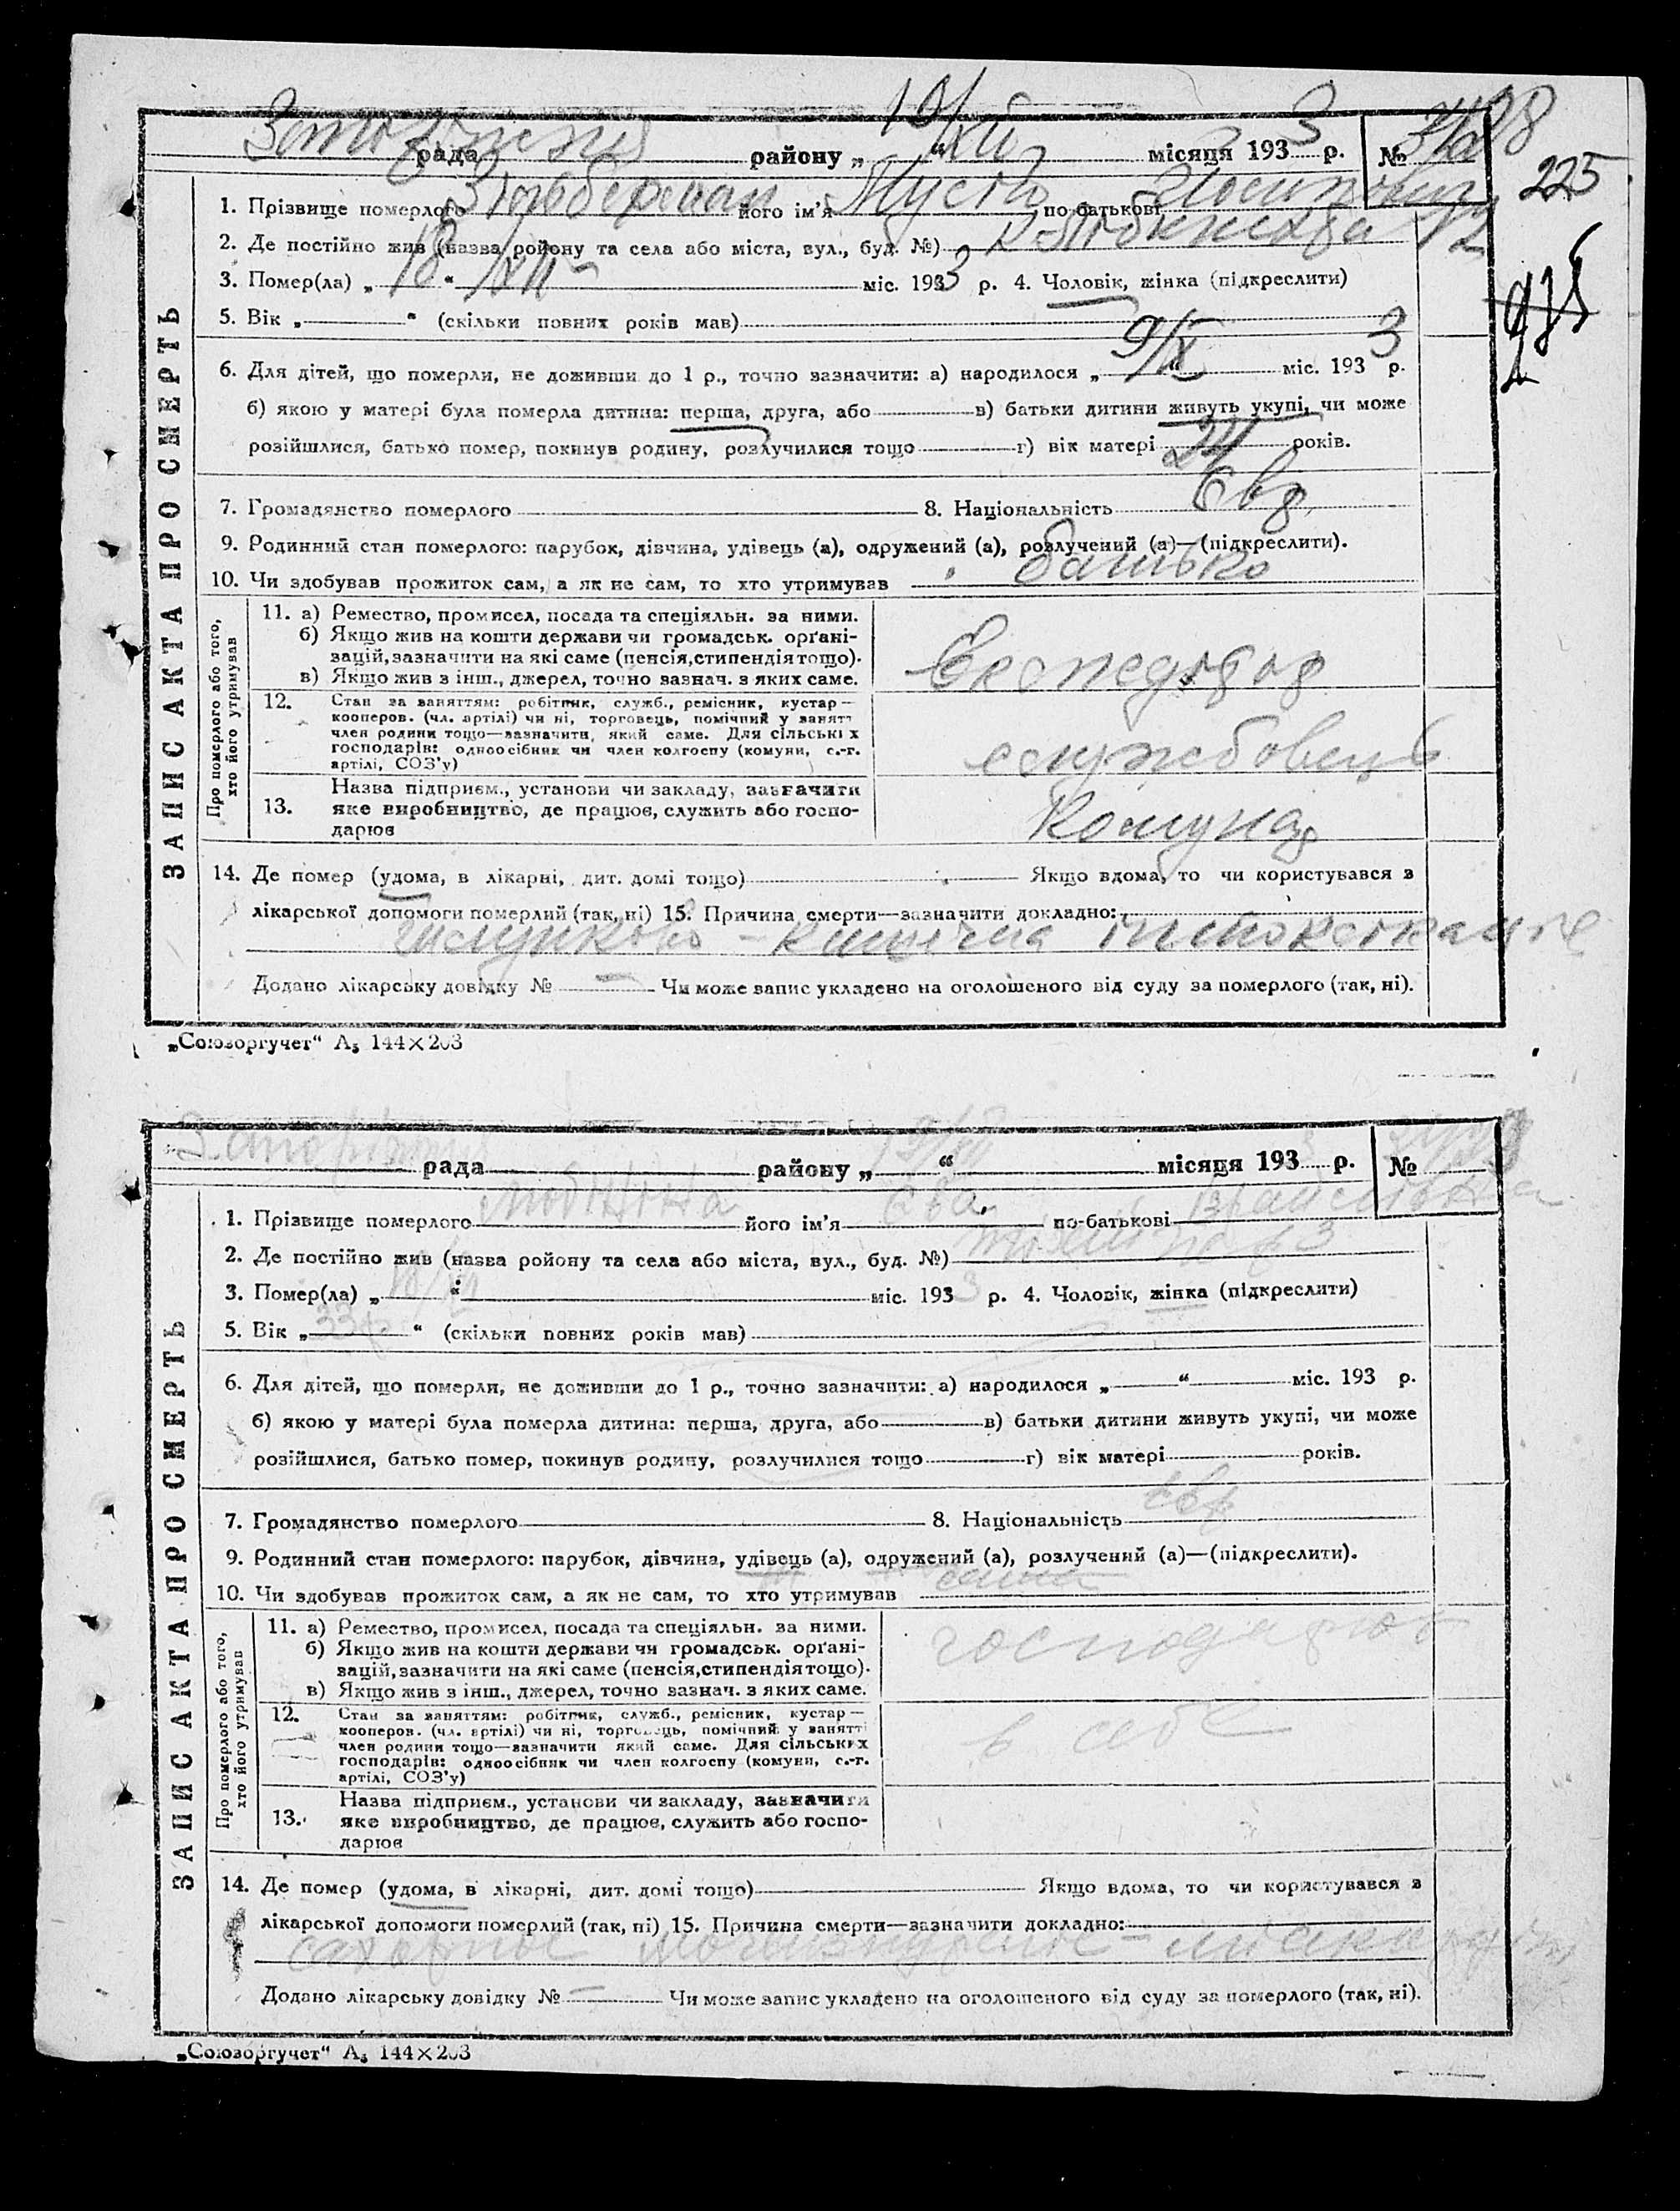 рада району „ 19/XII “ місяця 1933 р. №
225
1. Прізвище померлого його ім'я по-батькові
2. Де постійно жив (назва ройону та села або міста, вул., буд. №) 12
3. Помер(ла) „ 18 “ /XII міс. 1933 р. 4. Чоловік, жінка (підкреслити)
5. Вік „ “ (скільки повних років мав)
6. Для дітей, що померли, не доживши до 1 р., точно зазначити: а) народилося „ 9/X “ міс. 1933 р.
б) якою у матері була померла дитина: перша, друга, або в) батьки дитини живуть укупі, чи може
розійшлися, батько помер, покинув родину, розлучилися тощо г) вік матері 24 років.
7. Громадянство померлого 8. Національність Євр.
9. Родинний стан померлого: парубок, дівчина, удівець (а), одружений (а), розлучений (а)—(підкреслити).
10. Чи здобував прожиток сам, а як не сам, то хто утримував батько
ЗАПИС АКТА ПРО СМЕРТЬ
Про померлого або того, хто його утримував
11. а) Ремество, промисел, посада та спеціяльн. за ними.
б) Якщо жив на кошти держави чи громадськ. орґані-
зацій, зазначити на які саме (пенсія, стипендія тощо).
в) Якщо жив з інш., джерел, точно зазнач. з яких саме.
Експедитор
12. Стан за заняттям: робітник, служб., ремісник, кустар—
кооперов. (чл. артілі) чи ні, торговець, помічний у занятт
член родини тощо—зазначити, який саме. Для сільських
господарів: одноосібник чи член колгоспу (комуни, с.-г.
артілі, СОЗ'у)
службовець
13. Назва підприєм., установи чи закладу, зазначити
яке виробництво, де працює, служить або госпо-
дарює
Комунар
14. Де помер (удома, в лікарні, дит. домі тощо) Якщо вдома, то чи користувався з
лікарської допомоги померлий (так, ні) 15. Причина смерти—зазначити докладно:
шлунково - кишечна
Додано лікарську довідку № — Чи може запис укладено на оголошеного від суду за померлого (так, ні).
„Союзоргучет“ А₅ 144×203
рада району „ 19/XII “ місяця 1933 р. №
1. Прізвище померлого його ім'я Єва по-батькові
2. Де постійно жив (назва ройону та села або міста, вул., буд. №)
3. Помер(ла) „ 18/XII “ міс. 1933 р. 4. Чоловік, жінка (підкреслити)
5. Вік „ 33 “ (скільки повних років мав)
6. Для дітей, що померли, не доживши до 1 р., точно зазначити: а) народилося „ “ міс. 193 р.
б) якою у матері була померла дитина: перша, друга, або в) батьки дитини живуть укупі, чи може
розійшлися, батько помер, покинув родину, розлучилися тощо г) вік матері років.
7. Громадянство померлого 8. Національність Євр
9. Родинний стан померлого: парубок, дівчина, удівець (а), одружений (а), розлучений (а)—(підкреслити).
10. Чи здобував прожиток сам, а як не сам, то хто утримував
ЗАПИС АКТА ПРО СМЕРТЬ
Про померлого або того, хто його утримував
11. а) Ремество, промисел, посада та спеціяльн. за ними.
б) Якщо жив на кошти держави чи громадськ. орґані-
зацій, зазначити на які саме (пенсія, стипендія тощо).
в) Якщо жив з інш., джерел, точно зазнач. з яких саме.
господарює
12. Стан за заняттям: робітник, служб., ремісник, кустар—
кооперов. (чл. артілі) чи ні, торговець, помічний у занятті
член родини тощо—зазначити який саме. Для сільських
господарів: одноосібник чи член колгоспу (комуни, с.-г.
артілі, СОЗ'у)
в себе
13. Назва підприєм., установи чи закладу, зазначити
яке виробництво, де працює, служить або госпо-
дарює
14. Де помер (удома, в лікарні, дит. домі тощо) Якщо вдома, то чи користувався з
лікарської допомоги померлий (так, ні) 15. Причина смерти—зазначити докладно:
Додано лікарську довідку № — Чи може запис укладено на оголошеного від суду за померлого (так, ні).
„Союзоргучет“ А₅ 144×203